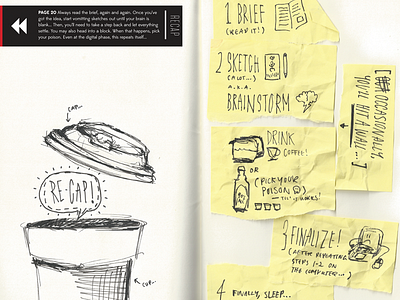 PAGE 20 Always read the brief, again and again. Once you've
got the idea, start vomiting sketches out until your brain is
blank... Then, you'll need to take a step back and let everything
settle. You may also head into a block. When that happens, pick
your poison. Even at the digital phase, this repeats itself...
RECAP
CAP...
RE-CAP!
CUP...
1 BRIEF
(READ IT!)
2 SKETCH
(A LOT...)
A.K.A.
BRAINSTORM
[### OCCASIONALLY
YOU'LL HIT A WALL...]
DRINK
COFFEE!
OR
(PICK YOUR
POISON)
3 FINALIZE!
(AFTER REPEATING
STEPS 1-2 ON
THE COMPUTER...)
4 FINALLY, SLEEP...